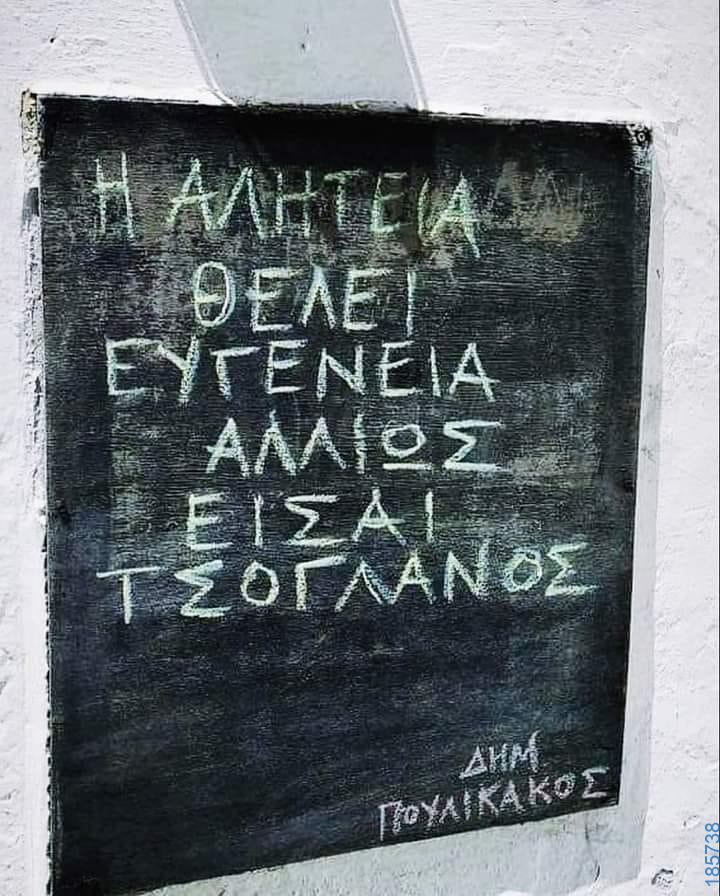 Η ΑΛΗΤΕΙΑ
ΘΕΛΕΙ
ΕΥΓΕΝΕΙΑ
ΑΛΛΙΩΣ
ΕΙΣΑΙ
ΤΣΟΓΛΑΝΟΣ
ΔΗΜ
ΠΟΥΛΙΚΑΚΟΣ
185738